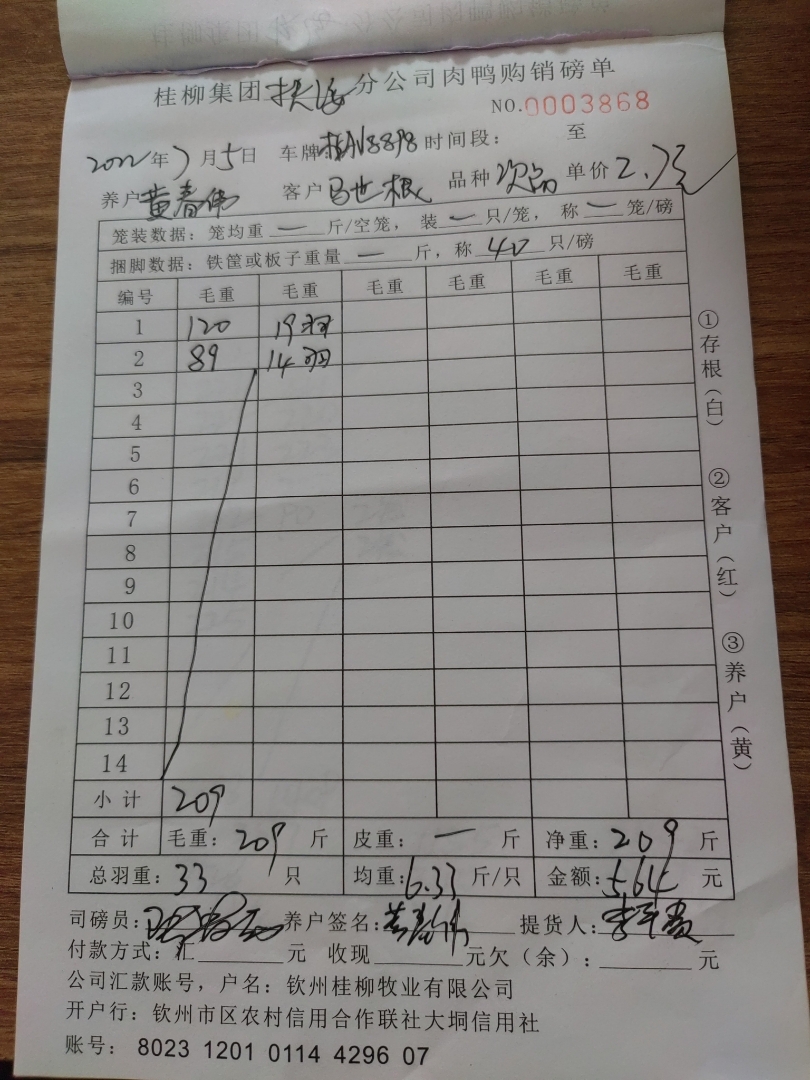 桂柳集团 分公司肉鸭购销磅单
NO.0003868
2022年7月5日 车牌:桂N8898 时间段: 至
养户黄春伟 客户马世根 品种次品 单价2.7元
笼装数据:笼均重 — 斤/空笼,装 — 只/笼,称 — 笼/磅
捆脚数据:铁筐或板子重量 — 斤,称 40 只/磅
编号 毛重 毛重 毛重 毛重 毛重 毛重
1 120 19羽
2 89 14羽
3
4
5
6
7
8
9
10
11
12
13
14
小计 209
合计 毛重:209 斤 皮重: — 斤 净重:209 斤
总羽重:33 只 均重:6.33 斤/只 金额:564 元
司磅员: 养户签名:黄春伟 提货人:
付款方式:汇 元 收现 元欠(余): 元
公司汇款账号,户名:钦州桂柳牧业有限公司
开户行:钦州市区农村信用合作联社大垌信用社
账号: 8023 1201 0114 4296 07
①存根(白)
②客户(红)
③养户(黄)